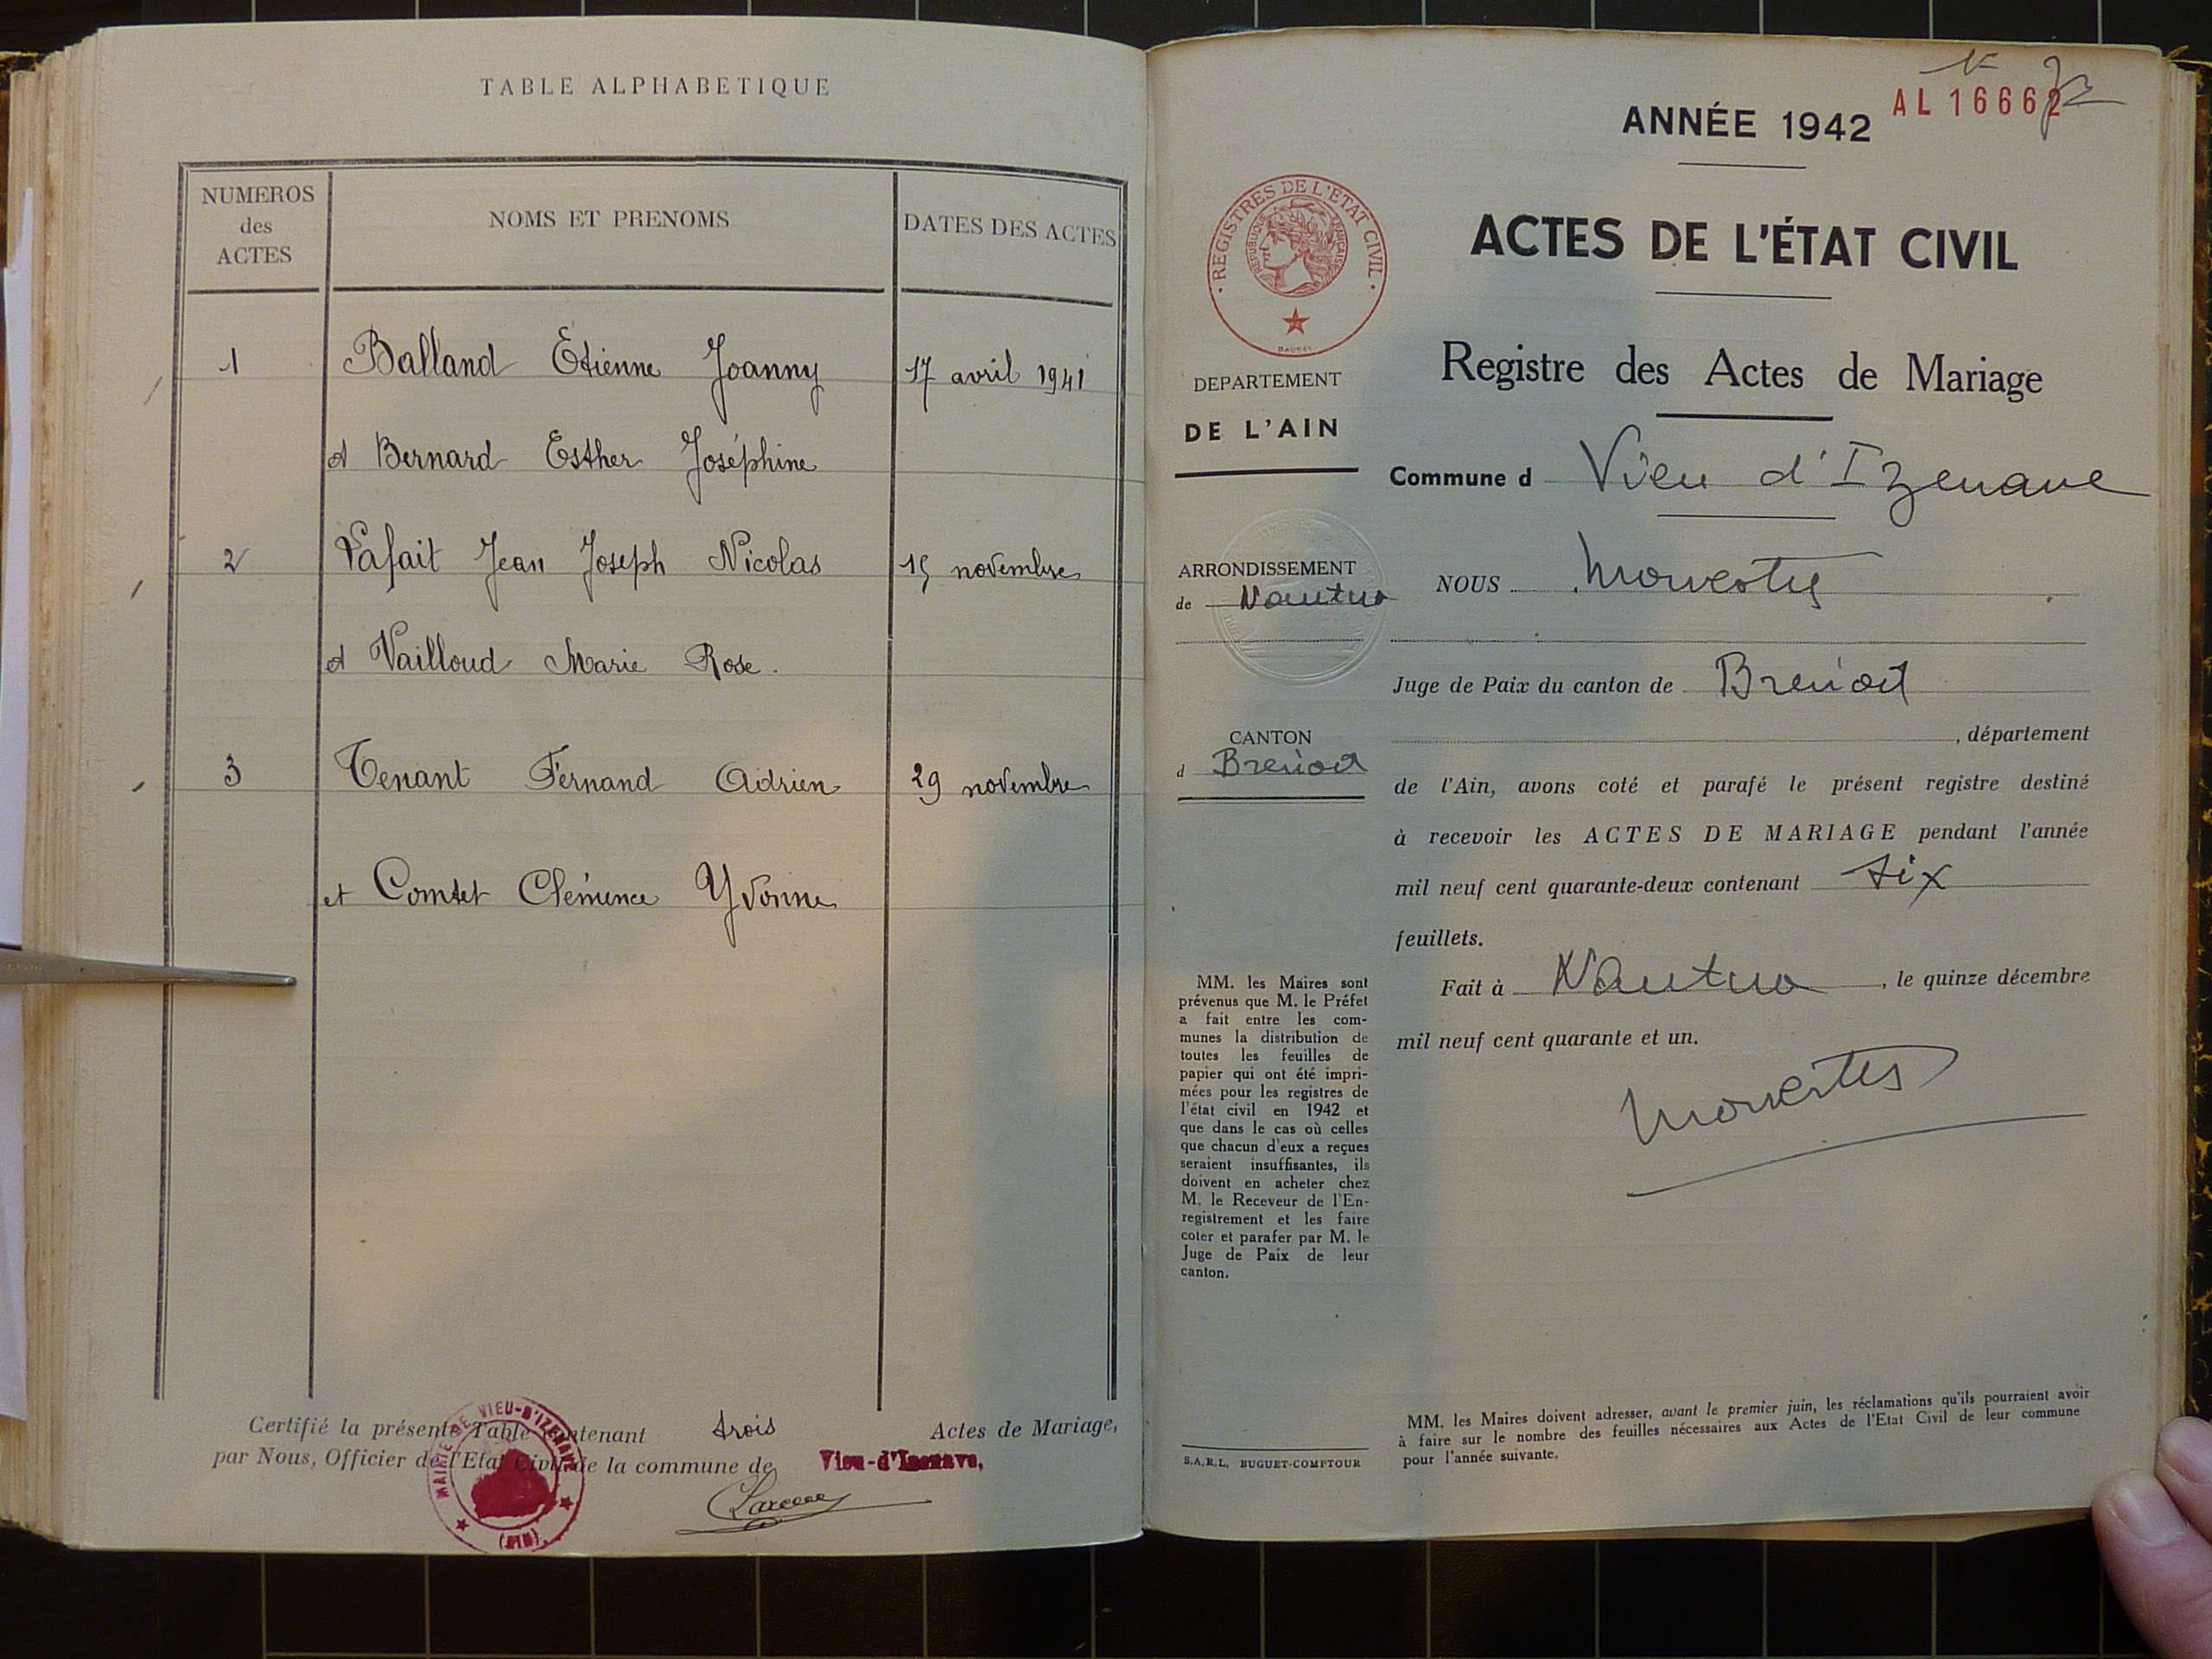 TABLE ALPHABETIQUE
NUMEROS
des
ACTES
NOMS ET PRENOMS
DATES DES ACTES
1 Balland Etienne Joanny 17 avril 1941
et Bernard Esther Joséphine
2 Lafait Jean Joseph Nicolas 15 novembre
et Vailloud Marie Rose.
3 Tenant Fernand Adrien 29 novembre
et Comtet Clémence Yvonne
Certifié la présente Table contenant trois Actes de Mariage,
par Nous, Officier de l'Etat Civil de la commune de Vieu-d'Izenave,
MAIRIE DE VIEU-D'IZENAVE
(AIN)
AL 16662
ANNÉE 1942
REGISTRES DE L'ÉTAT CIVIL
RÉPUBLIQUE FRANÇAISE
ACTES DE L'ÉTAT CIVIL
Registre des Actes de Mariage
DEPARTEMENT
DE L'AIN
Commune d Vieu d'Izenave
ARRONDISSEMENT
de Nantua
NOUS
Juge de Paix du canton de Brénod
CANTON
d Brénod
, département
de l'Ain, avons coté et parafé le présent registre destiné
à recevoir les ACTES DE MARIAGE pendant l'année
mil neuf cent quarante-deux contenant six
feuillets.
Fait à Nantua, le quinze décembre
mil neuf cent quarante et un.
MM. les Maires sont
prévenus que M. le Préfet
a fait entre les com-
munes la distribution de
toutes les feuilles de
papier qui ont été impri-
mées pour les registres de
l'état civil en 1942 et
que dans le cas où celles
que chacun d'eux a reçues
seraient insuffisantes, ils
doivent en acheter chez
M. le Receveur de l'En-
registrement et les faire
coter et parafer par M. le
Juge de Paix de leur
canton.
S.A.R.L. BUGUET-COMPTOUR
MM. les Maires doivent adresser, avant le premier juin, les réclamations qu'ils pourraient avoir
à faire sur le nombre des feuilles nécessaires aux Actes de l'Etat Civil de leur commune
pour l'année suivante.